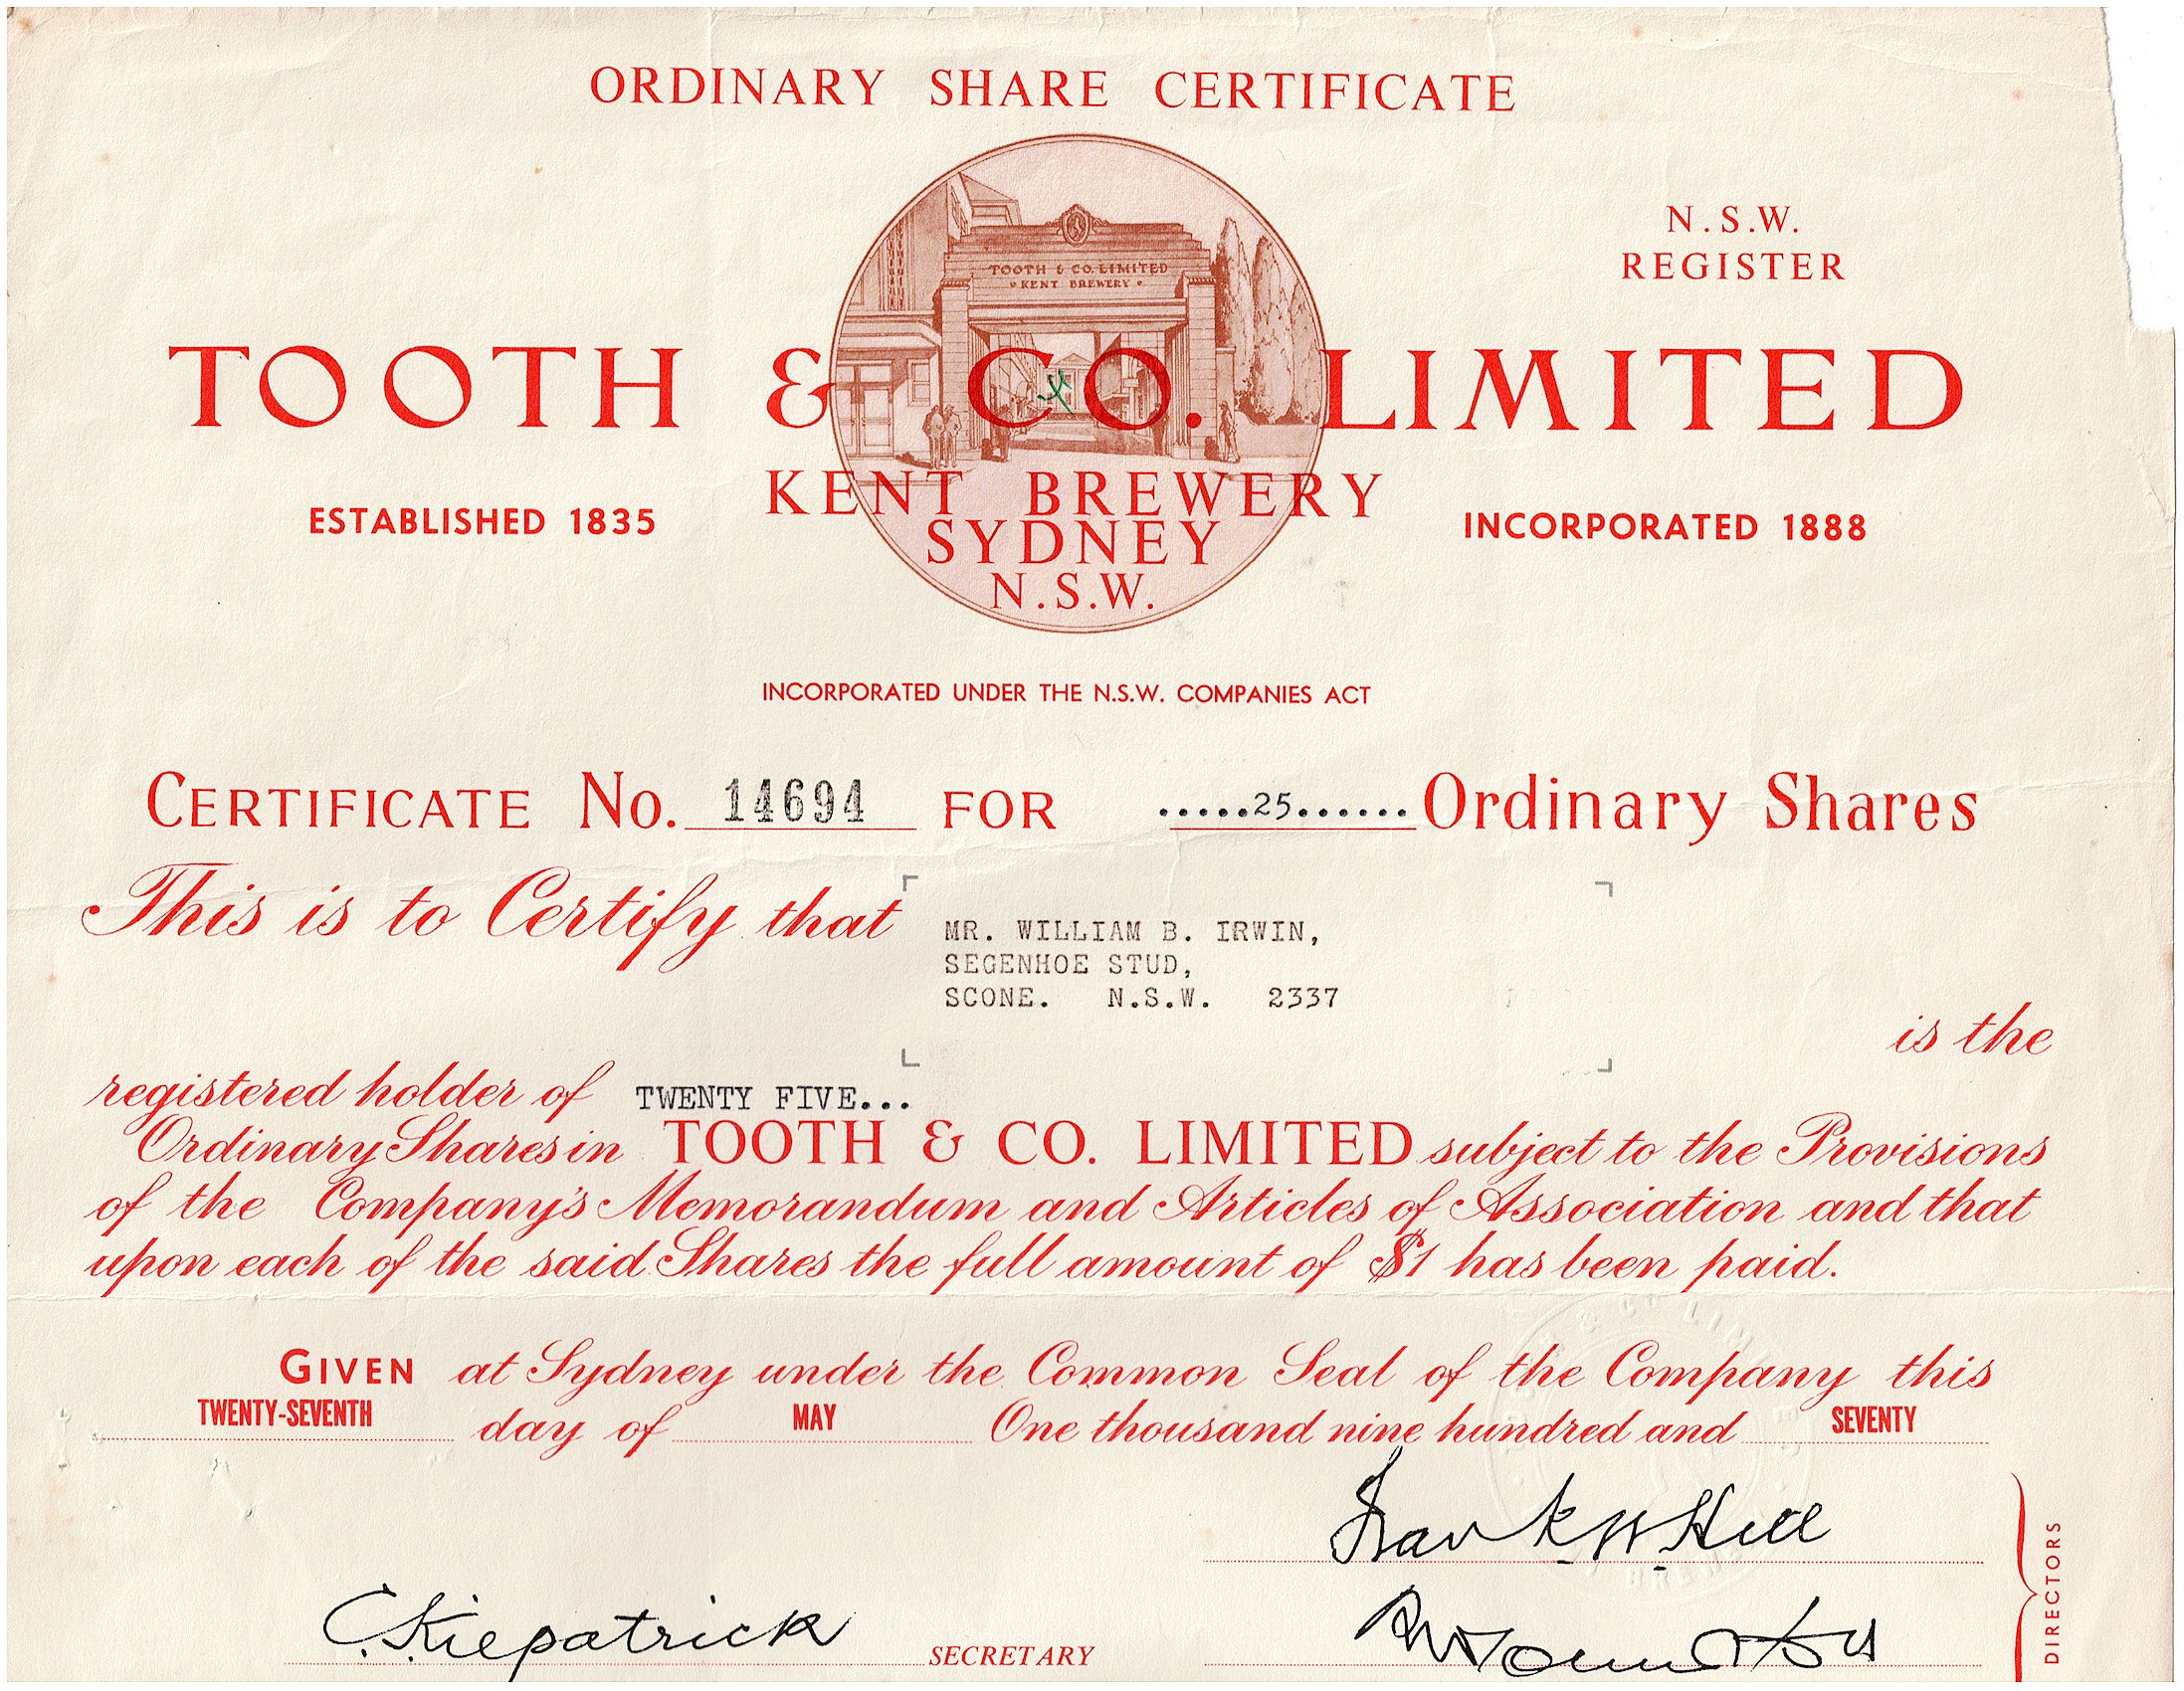 ORDINARY SHARE CERTIFICATE
N.S.W.
REGISTER
TOOTH & CO. LIMITED
KENT BREWERY
TOOTH & CO. LIMITED
ESTABLISHED 1835
KENT BREWERY
INCORPORATED 1888
SYDNEY
N.S.W.
INCORPORATED UNDER THE N.S.W. COMPANIES ACT
CERTIFICATE No. 14694 FOR .....25...... Ordinary Shares
This is to Certify that
MR. WILLIAM B. IRWIN,
SEGENHOE STUD,
SCONE. N.S.W. 2337
is the
registered holder of TWENTY FIVE...
Ordinary Shares in TOOTH & CO. LIMITED subject to the Provisions
of the Company's Memorandum and Articles of Association and that
upon each of the said Shares the full amount of $1 has been paid.
GIVEN at Sydney under the Common Seal of the Company this
TWENTY-SEVENTH day of MAY One thousand nine hundred and SEVENTY
Frank W. Hill
C. Kilpatrick SECRETARY
DIRECTORS